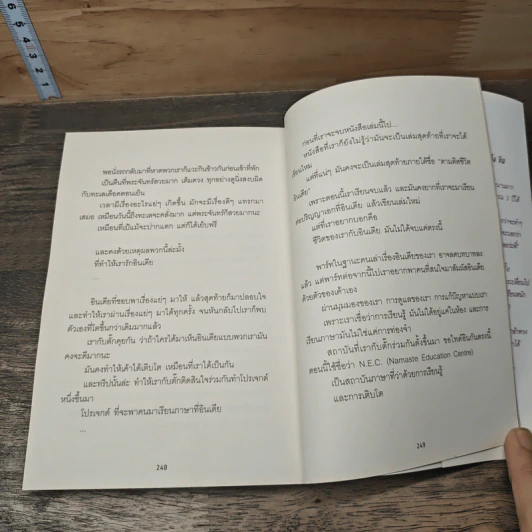 พอนั่งรถกลับมาที่หาดพวกเราก็แวะกินข้าวกันก่อนเข้าที่พัก
เป็นคืนที่พระจันทร์สวยมาก เต็มดวง ทุกอย่างดูนิ่งสงบผิด
กับทะเลเดือดตอนเย็น
เวลามีเรื่องอะไรแย่ๆ เกิดขึ้น มักจะมีเรื่องดีๆ แทรกมา
เสมอ เหมือนวันนี้ถึงทะเลจะคลั่งมาก แต่พระจันทร์ก็สวยมากนะ
เหมือนที่เป้มัจะปากแตก แต่ก็ได้เย็บฟรี
...
และคงด้วยเหตุผลพวกนี้ละมั้ง
ที่ทำให้เรารักอินเดีย
...
อินเดียที่ชอบพาเรื่องแย่ๆ มาให้ แล้วสุดท้ายก็มาปลอบใจ
และทำให้เราผ่านเรื่องแย่ๆ มาได้ทุกครั้ง จนหันกลับไปเราก็พบ
ตัวเองที่โตขึ้นกว่าเดิมมากแล้ว
เรากับตั๊กคุยกัน ว่าถ้าใครได้มาเห็นอินเดียแบบพวกเรามัน
คงจะดีมากนะ
มันคงทำให้เค้าได้เติบโต เหมือนที่เราได้เป็นกัน
และทริปนั้นล่ะ ทำให้เรากับตั๊กติดสินใจร่วมกันทำโปรเจกต์
หนึ่งขึ้นมา
โปรเจกต์ ที่จะพาคนมาเรียนภาษาที่อินเดีย
...
248
ก่อนที่เราจะจบหนังสือเล่มนี้ไป...
หนังสือที่เราก็ยังไม่รู้ว่ามันจะเป็นเล่มสุดท้ายที่เราจะได้
เขียนไหม
แต่ที่แน่ๆ มันคงจะเป็นเล่มสุดท้ายภายใต้ชื่อ "ตามติดชีวิต
อินเดีย"
เพราะตอนนี้เราเรียนจบแล้ว และมันคงยากที่เราจะมาเรียน
ต่อปริญญาเอกที่อินเดีย แล้วเขียนเล่มใหม่
แต่ที่เราอยากบอกคือ
ชีวิตของเรากับอินเดีย มันไม่ได้จบแค่ตรงนี้
พาร์ทในฐานะคนเล่าเรื่องอินเดียของเรา อาจลดบทบาทลง
แล้ว แต่พาร์ทต่อจากนี้ไปเราอยากพาคนที่สนใจมาสัมผัสอินเดีย
ด้วยตัวของเค้าเอง
ผ่านมุมมองของเรา การดูแลของเรา การแก้ปัญหาแบบเรา
เพราะเราเชื่อว่าการเรียนรู้ มันไม่ได้อยู่แค่ในห้อง และการ
เรียนภาษามันไม่ใช่แค่การท่องจำ
สถาบันที่เรากับตั๊กร่วมกันตั้งขึ้นมา ขอไทด์อินกันตรงนี้
ตอนนี้ใช้ชื่อว่า N.E.C. (Namaste Education Centre)
เป็นสถาบันภาษาที่ว่าด้วยการเรียนรู้
และการเติบโต
249